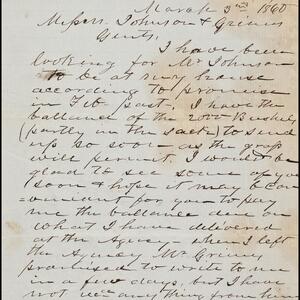 March 3rd 1860
Messrs Johnson & Grimes
Gents,
I have been
looking for Mr Johnson
to be at my house
according to promise
in Feb past. I have the
ballance of the 2000 Bushels
(partly in the sack) to send
up so soon as the grass
will permit. I would be
glad to see some of you
soon & hope it may be con
venient for you to pay
me the ballance due on
what I have delivered
at the Agency. When I left
the Agency Mr Grimes
promised to write to me
in a few days, but I have
not any thing from him